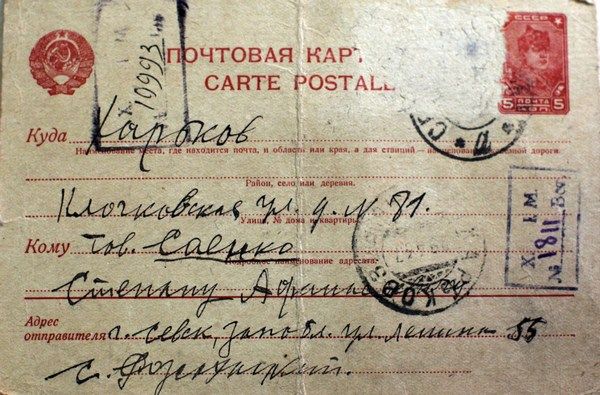 ПОЧТОВАЯ КАРТ
CARTE POSTALE
СССР
5 ПОЧТА 5
КОП.
Х. И. М.
10993
Куда Харьков
Наименование места, где находится почта, и область или края, а для станций — наименование железной дороги.
Район, село или деревня.
Клочковская ул. д. № 81.
Улица, № дома и квартиры.
Кому Тов. Саенко
Подробное наименование адресата.
Степану
Х. И. М.
№ 1811 Вс.
Адрес
отправителя г. ул Ленина 55
с.